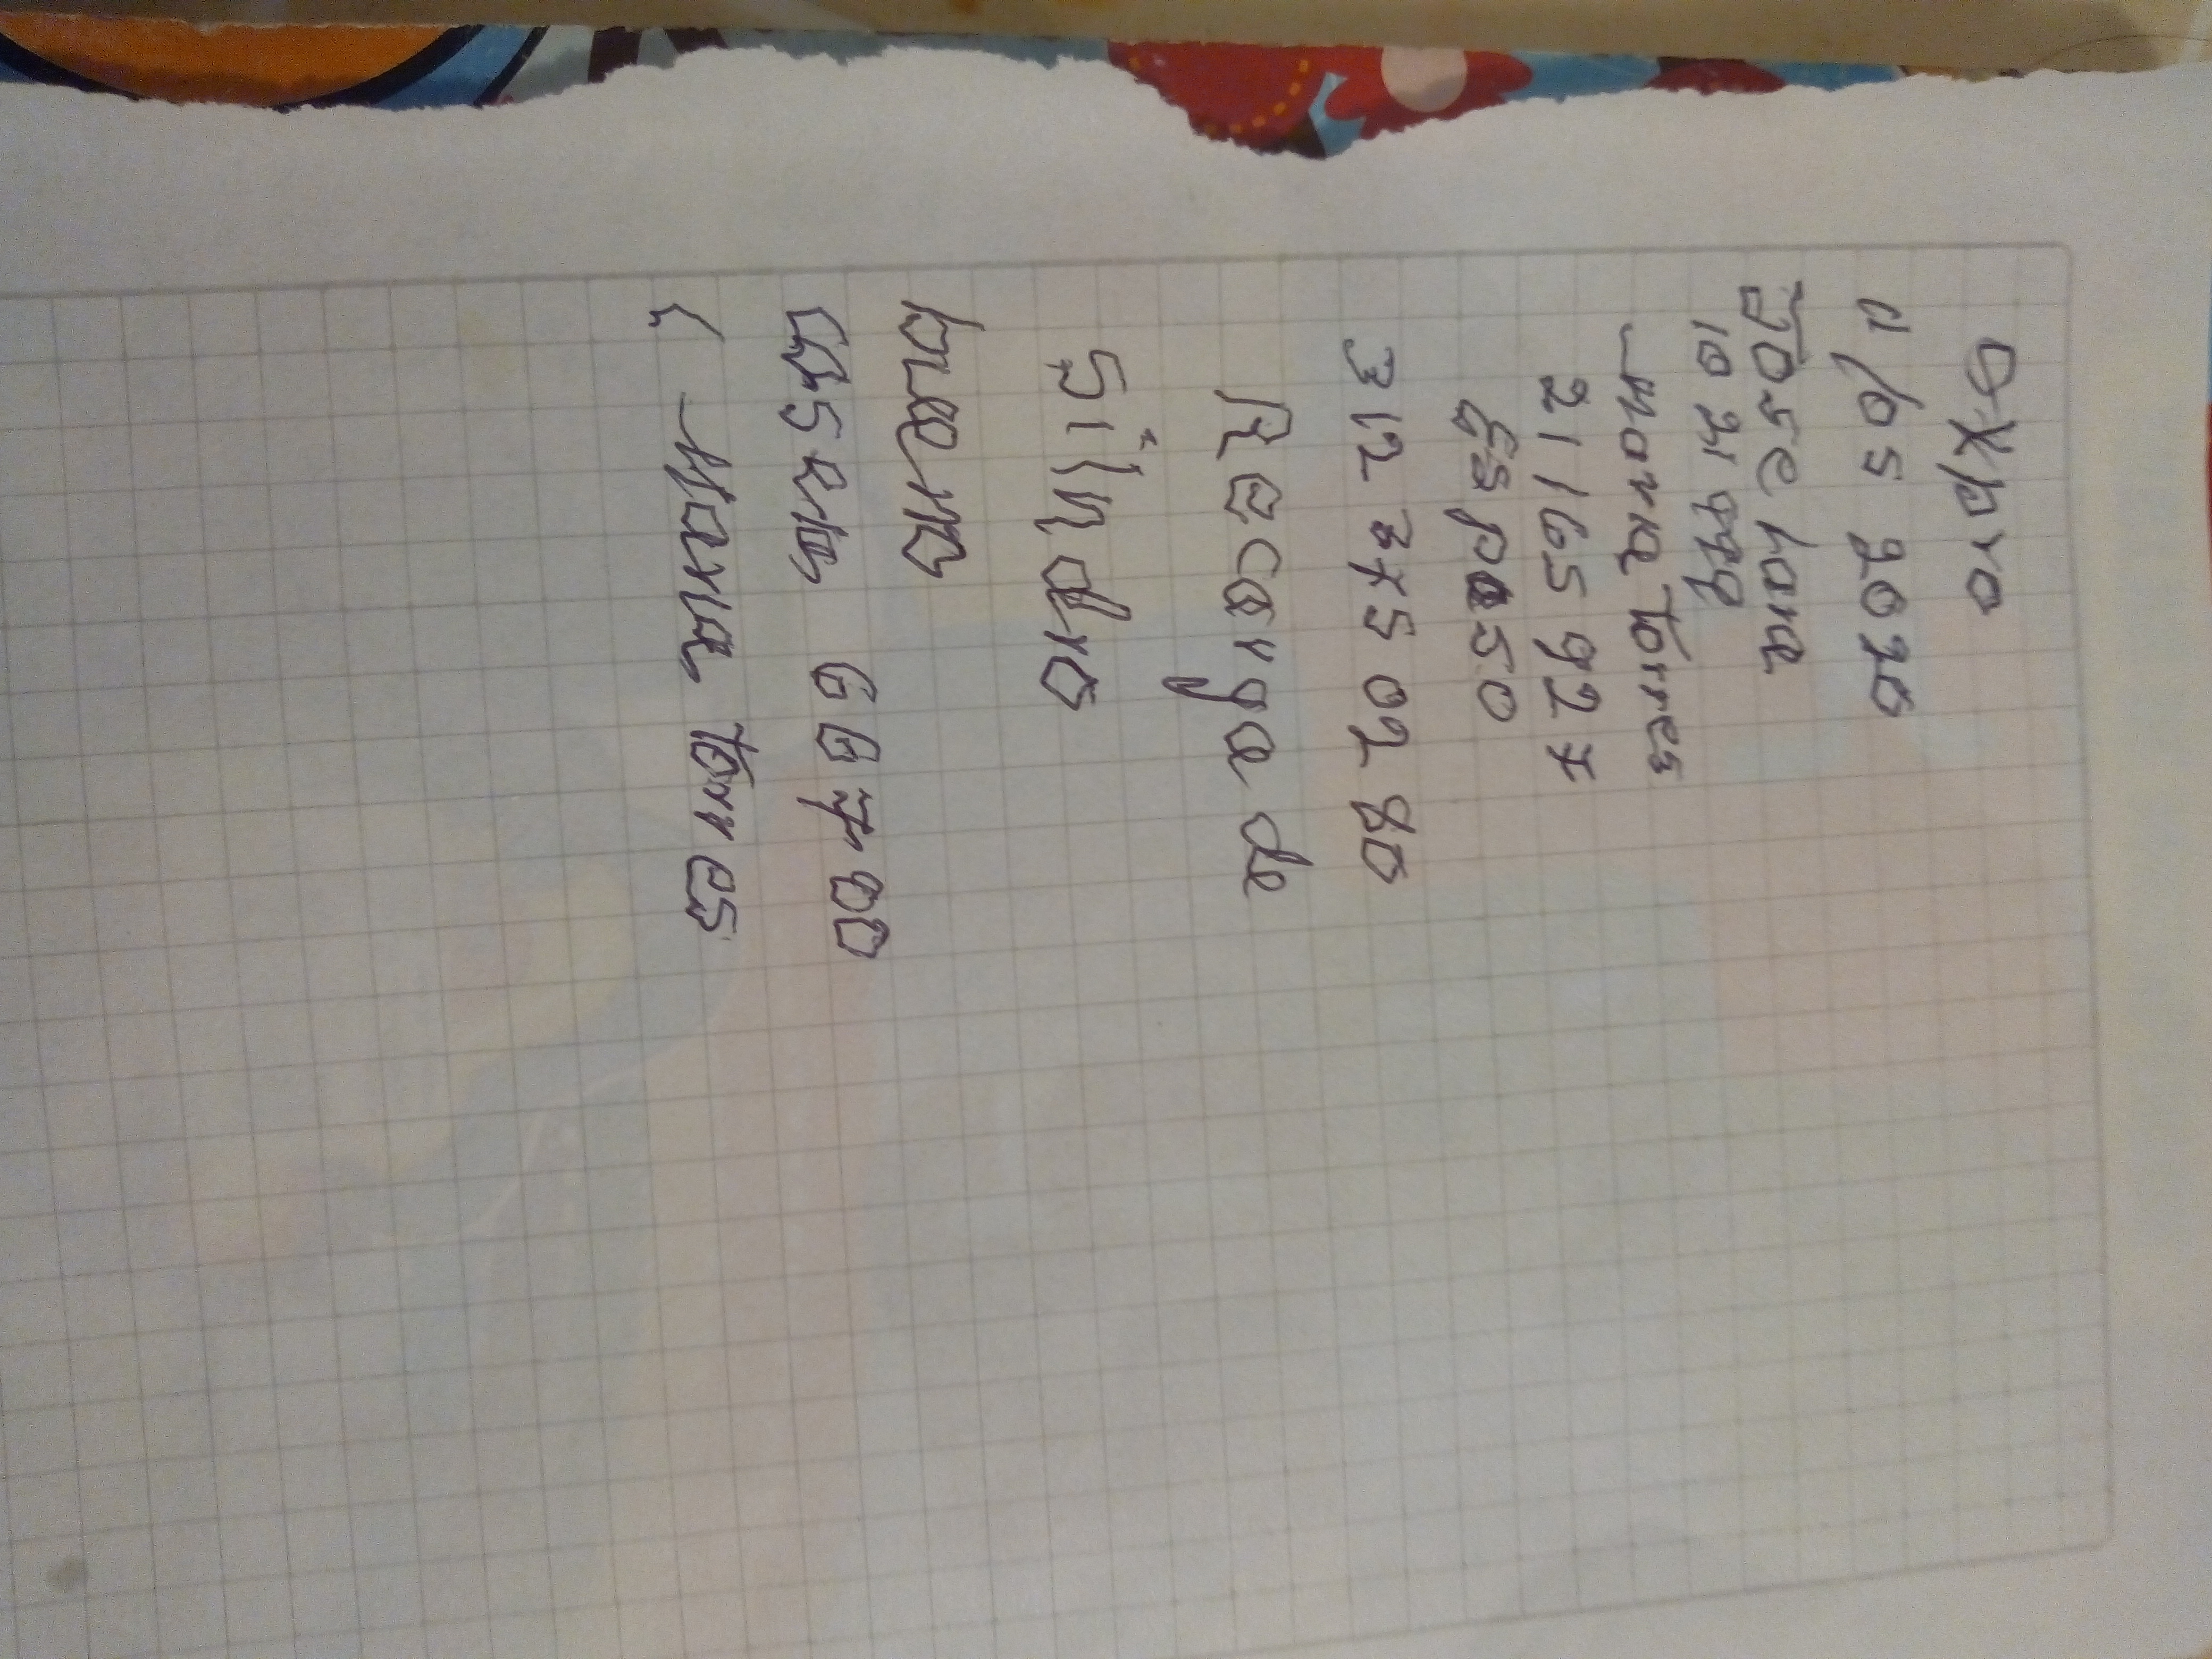 oxpro
11/05 2020
Jose loua
10 21 999
Maria Torres
21165927
Esposo
312 275 02 80
Recarga de
Silindro
para
6G780
Maria Torres